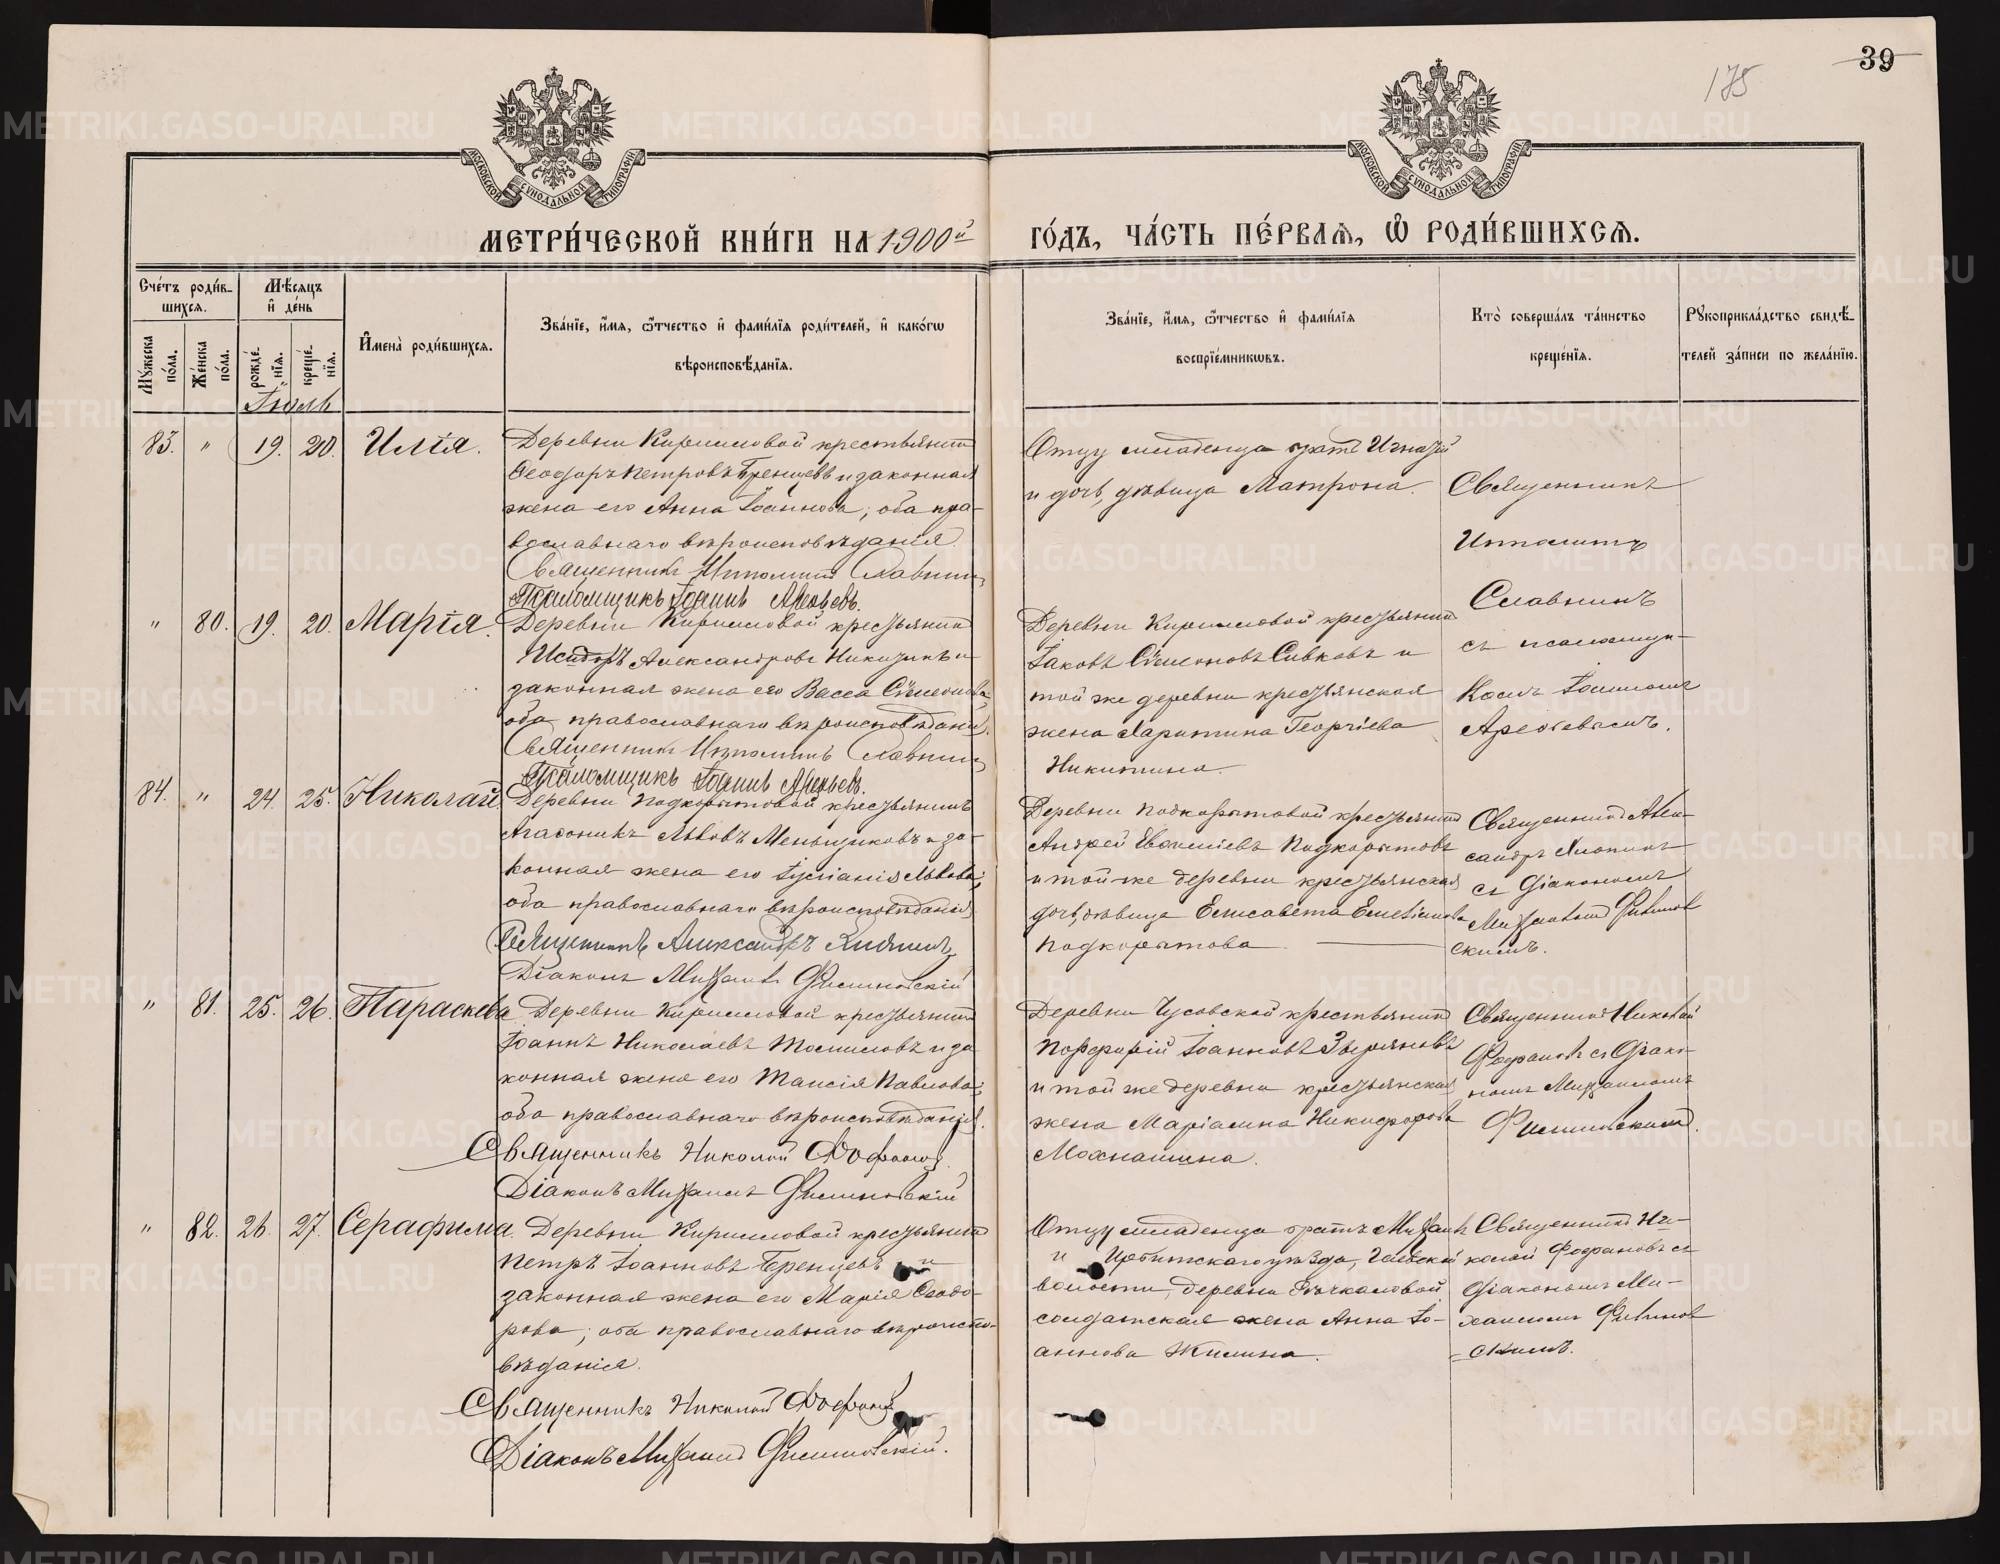 39
175
МОСКОВСКОЙ СѴНОДАЛЬНОЙ ТИПОГРАФІИ
МОСКОВСКОЙ СѴНОДАЛЬНОЙ ТИПОГРАФІИ
МЕТРИ́ЧЕСКОЙ КНИ́ГИ НА 1900й ГО́ДЪ, ЧА́СТЬ ПЕ́РВАѦ, Ѡ РОДИ́ВШИХСѦ.
Сче́тъ роди́в-
шихсѧ.
Мꙋ́жеска по́ла.
Же́нска по́ла.
Мѣ́сѧцъ
и де́нь
рожде́нїѧ.
креще́нїѧ.
И҆мена̀ роди́вшихсѧ.
Зва́нїе, и҆́мѧ, ѻ҆́тчество и҆ фами́лїѧ роди́телей, и҆ како́гѡ
вѣроисповѣ́данїѧ.
Зва́нїе, и҆́мѧ, ѻ҆́тчество и҆ фами́лїѧ
воспрїе́мникѡвъ.
Кто̀ соверша́лъ та́инство
креще́нїѧ.
Рꙋкоприкла́дство свидѣ́-
телей за́писи по жела́нїю.
Іюль
83. " 19. 20. Илія.
Деревни Кирилловой крестьянинъ
Ѳеодоръ Петровъ Бренцевъ и законная
жена его Анна Іоаннова; оба пра-
вославнаго вѣроисповѣданія.
Священникъ Ипполитъ Славнинъ
Псаломщикъ Іоаннъ Арефьевъ.
Отцу младенца братъ Игнатій
и дочь, дѣвица Матрона.
Священникъ
Ипполитъ
Славнинъ
съ псаломщи-
комъ Іоанномъ
Арефьевымъ.
" 80. 19. 20. Марія.
Деревни Кирилловой крестьянинъ
Исидоръ Александровъ Никитинъ и
законная жена его Васса Сѵмеонова
оба православнаго вѣроисповѣданія.
Священникъ Ипполитъ Славнинъ
Псаломщикъ Іоаннъ Арефьевъ.
Деревни Кирилловой крестьянинъ
Іаковъ Сѵмеоновъ Сивковъ и
той же деревни крестьянская
жена Харитина Георгіева
Никитина.
84. " 24. 25. Николай
Деревни Подкорытовой крестьянинъ
Агаѳоникъ Львовъ Меньщиковъ и за-
конная жена его Іустинія Львова;
оба православнаго вѣроисповѣданія
Священникъ Александръ Хлопинъ
Діаконъ Михаилъ Филиповскій
Деревни Подкорытовой крестьянинъ
Андрей Подкорытовъ
и той же деревни крестьянская
дочь, дѣвица Елисавета
Подкорытова
Священникъ Алек-
сандръ Хлопинъ
съ діакономъ
Михаиломъ Филипов
скимъ.
" 81. 25. 26. Параскева
Деревни Кирилловой крестьянинъ
Іоаннъ Николаевъ Томиловъ и за-
конная жена его Таисія Павлова;
оба православнаго вѣроисповѣданія.
Священникъ Николай Фофановъ.
Діаконъ Михаилъ Филиповскій
Деревни Чусовской крестьянинъ
Порфирій Іоанновъ Звѣряновъ
и той же деревни крестьянская
жена Маріамна Никифорова
Мохнашина.
Священникъ Николай
Фофановъ съ діако-
номъ Михаиломъ
Филиповскимъ.
" 82. 26. 27. Серафима.
Деревни Кирилловой крестьянинъ
Петръ Іоанновъ Бренцевъ и
законная жена его Марія Ѳеодо-
рова; оба православнаго вѣроиспо-
вѣданія.
Священникъ Николай Фофановъ
Діаконъ Михаилъ Филиповскій.
Отцу младенца братъ Михаилъ
и Ирбитскаго уѣзда,
волости, деревни
солдатская жена Анна Іо-
аннова Жилина.
Священникъ Ни-
колай Фофановъ съ
діакономъ Ми-
хаиломъ Филипов
скимъ.
METRIKI.GASO-URAL.RU